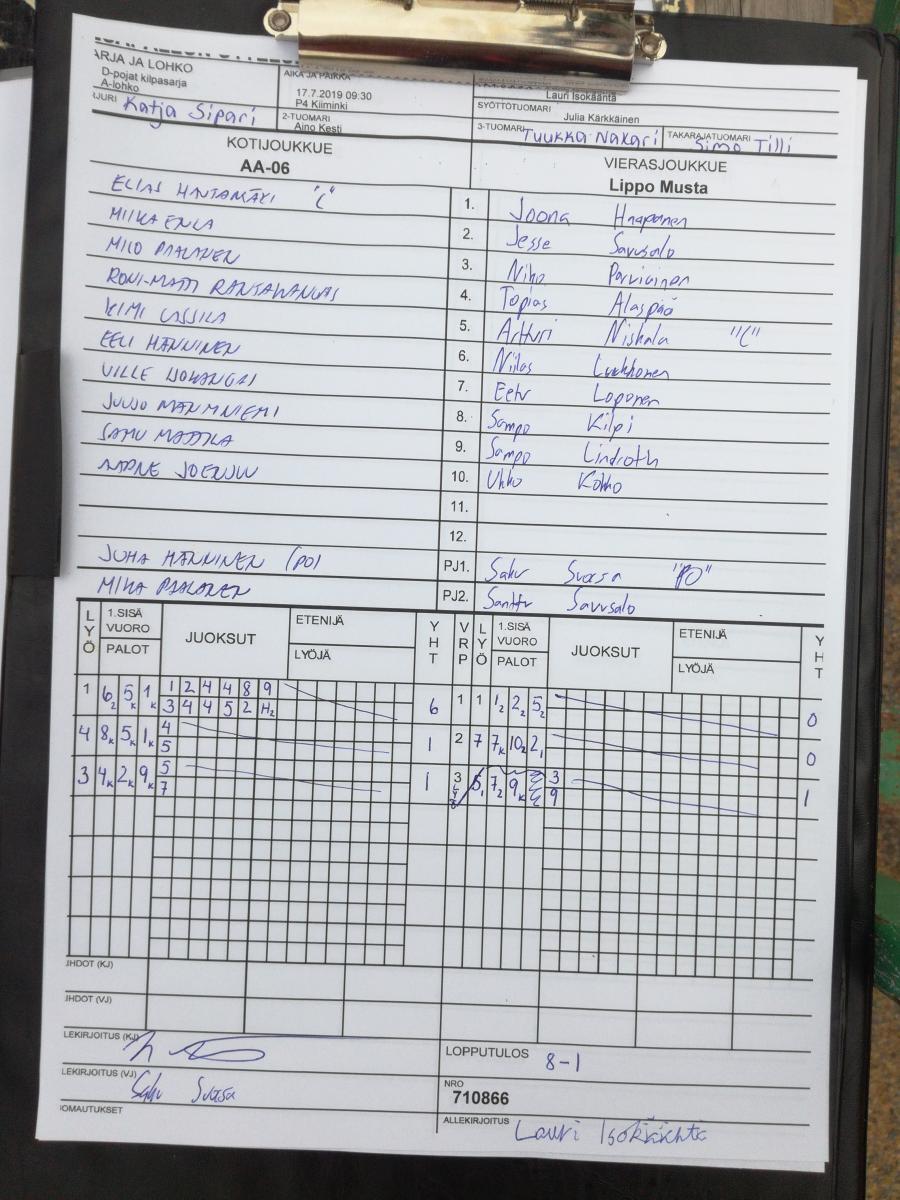 ARJA JA LOHKO
D-pojat kilpasarja
A-lohko
AIKA JA PAIKKA
17.7.2019 09:30
P4 Kiiminki
Lauri Isokääntä
SYÖTTÖTUOMARI
Julia Kärkkäinen
IJURI Katja Sipari
2-TUOMARI
Aino Kesti
3-TUOMARI Tuukka Nakari
TAKARAJATUOMARI
Simo Tilli
KOTIJOUKKUE
AA-06
VIERASJOUKKUE
Lippo Musta
ELIAS HANTAMÄKI "C" 1. Joona Haapanen
MIIKA ENLA 2. Jesse Savusalo
MILO PAALANEN 3. Niho Parviainen
RONI-MATTI RANTAKANGAS 4. Topias Alaspää
KIMI LASSILA 5. Artturi Niskala "C"
EELI HÄNNINEN 6. Niilas Luukkonen
VILLE 7. Eetu Loponen
JUUSO MANNINIEMI 8. Sampo Kilpi
SAMU MATTILA 9. Sampo Lindroth
AARNE 10. Ukko Kokko
11.
12.
JUHA HÄNNINEN (PO) PJ1. Saku Suorsa "PO"
MIKA PAALANEN PJ2. Santtu Savusalo
LYÖ 1.SISÄ VUORO PALOT JUOKSUT ETENIJÄ LYÖJÄ YHT VRP LYÖ 1.SISÄ VUORO PALOT JUOKSUT ETENIJÄ LYÖJÄ YHT
1 6₂ 5ₖ 1ₖ 1 2 4 4 8 9 6 1 1 1₂ 2₂ 5₂ 0
3 4 4 5 2 H₂
4 8ₖ 5ₖ 1ₖ 4 1 2 7 7ₖ 10₂ 2₁ 0
5
3 4ₖ 2ₖ 9ₖ 5 1 3 5₁ 7₂ 9ₖ 3 1
7 9
JHDOT (KJ)
JHDOT (VJ)
LEKIRJOITUS (KJ)
LOPPUTULOS 8-1
LEKIRJOITUS (VJ) Saku Suorsa
NRO
710866
OMAUTUKSET
ALLEKIRJOITUS Lauri Isokääntä